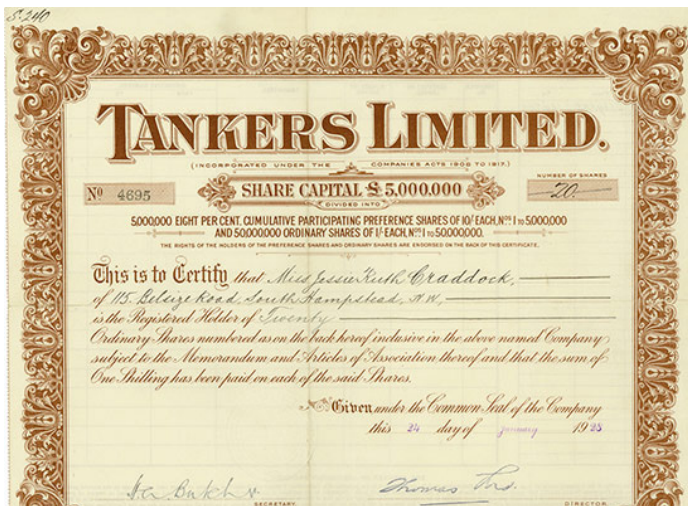 S.240
TANKERS LIMITED.
(INCORPORATED UNDER THE COMPANIES ACTS 1908 TO 1917.)
Nº 4695
SHARE CAPITAL £5,000,000
NUMBER OF SHARES
20
DIVIDED INTO
5,000,000 EIGHT PER CENT. CUMULATIVE PARTICIPATING PREFERENCE SHARES OF 10/- EACH, Nos 1 TO 5,000,000
AND 50,000,000 ORDINARY SHARES OF 1/- EACH, Nos 1 TO 50,000,000.
THE RIGHTS OF THE HOLDERS OF THE PREFERENCE SHARES AND ORDINARY SHARES ARE ENDORSED ON THE BACK OF THIS CERTIFICATE.
This is to Certify that Miss Jessie Ruth Craddock,
of 115, Belsize Road, South Hampstead, N.W,
is the Registered Holder of Twenty
Ordinary Shares numbered as on the back hereof inclusive in the above named Company
subject to the Memorandum and Articles of Association thereof and that the sum of
One Shilling has been paid on each of the said Shares.
Given under the Common Seal of the Company
this 24 day of January 1923
Thomas
SECRETARY
DIRECTOR